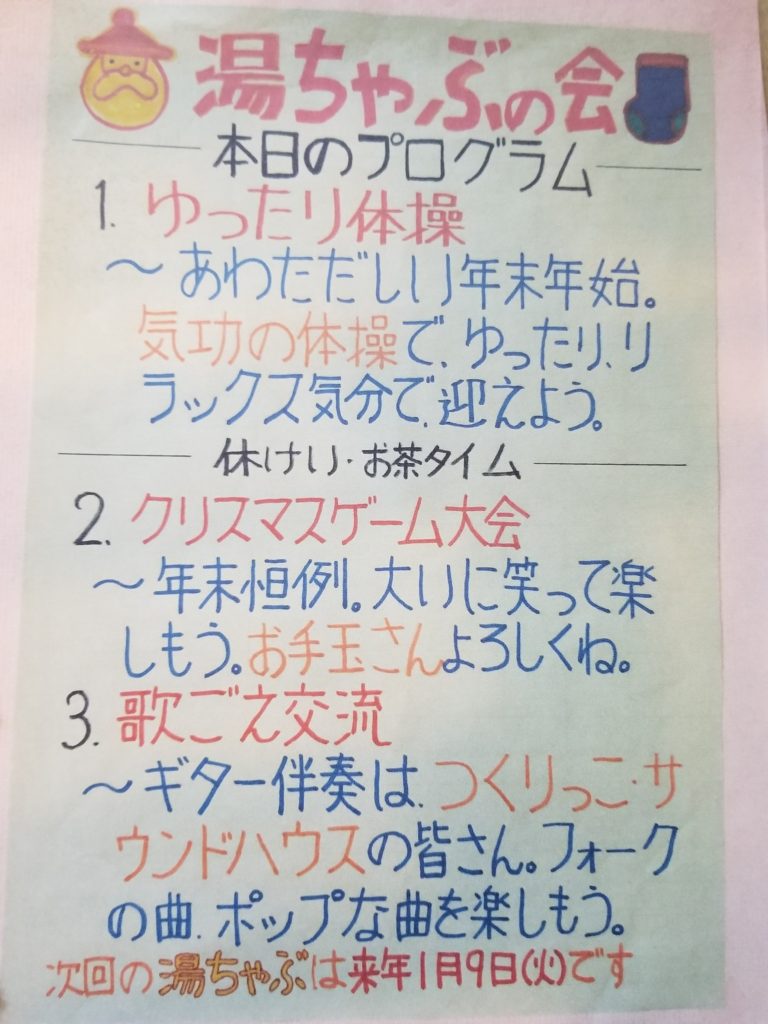 湯ちゃぶの会
本日のプログラム
1. ゆったり体操
～あわただしい年末年始。
気功の体操で、ゆったり、リ
ラックス気分で、迎えよう。
休けい・お茶タイム
2. クリスマスゲーム大会
～年末恒例。大いに笑って楽
しもう。お手玉さんよろしくね。
3. 歌ごえ交流
～ギター伴奏は、つくりっこ・サ
ウンドハウスの皆さん。フォーク
の曲、ポップな曲を楽しもう。
次回の湯ちゃぶは来年1月9日(火)です